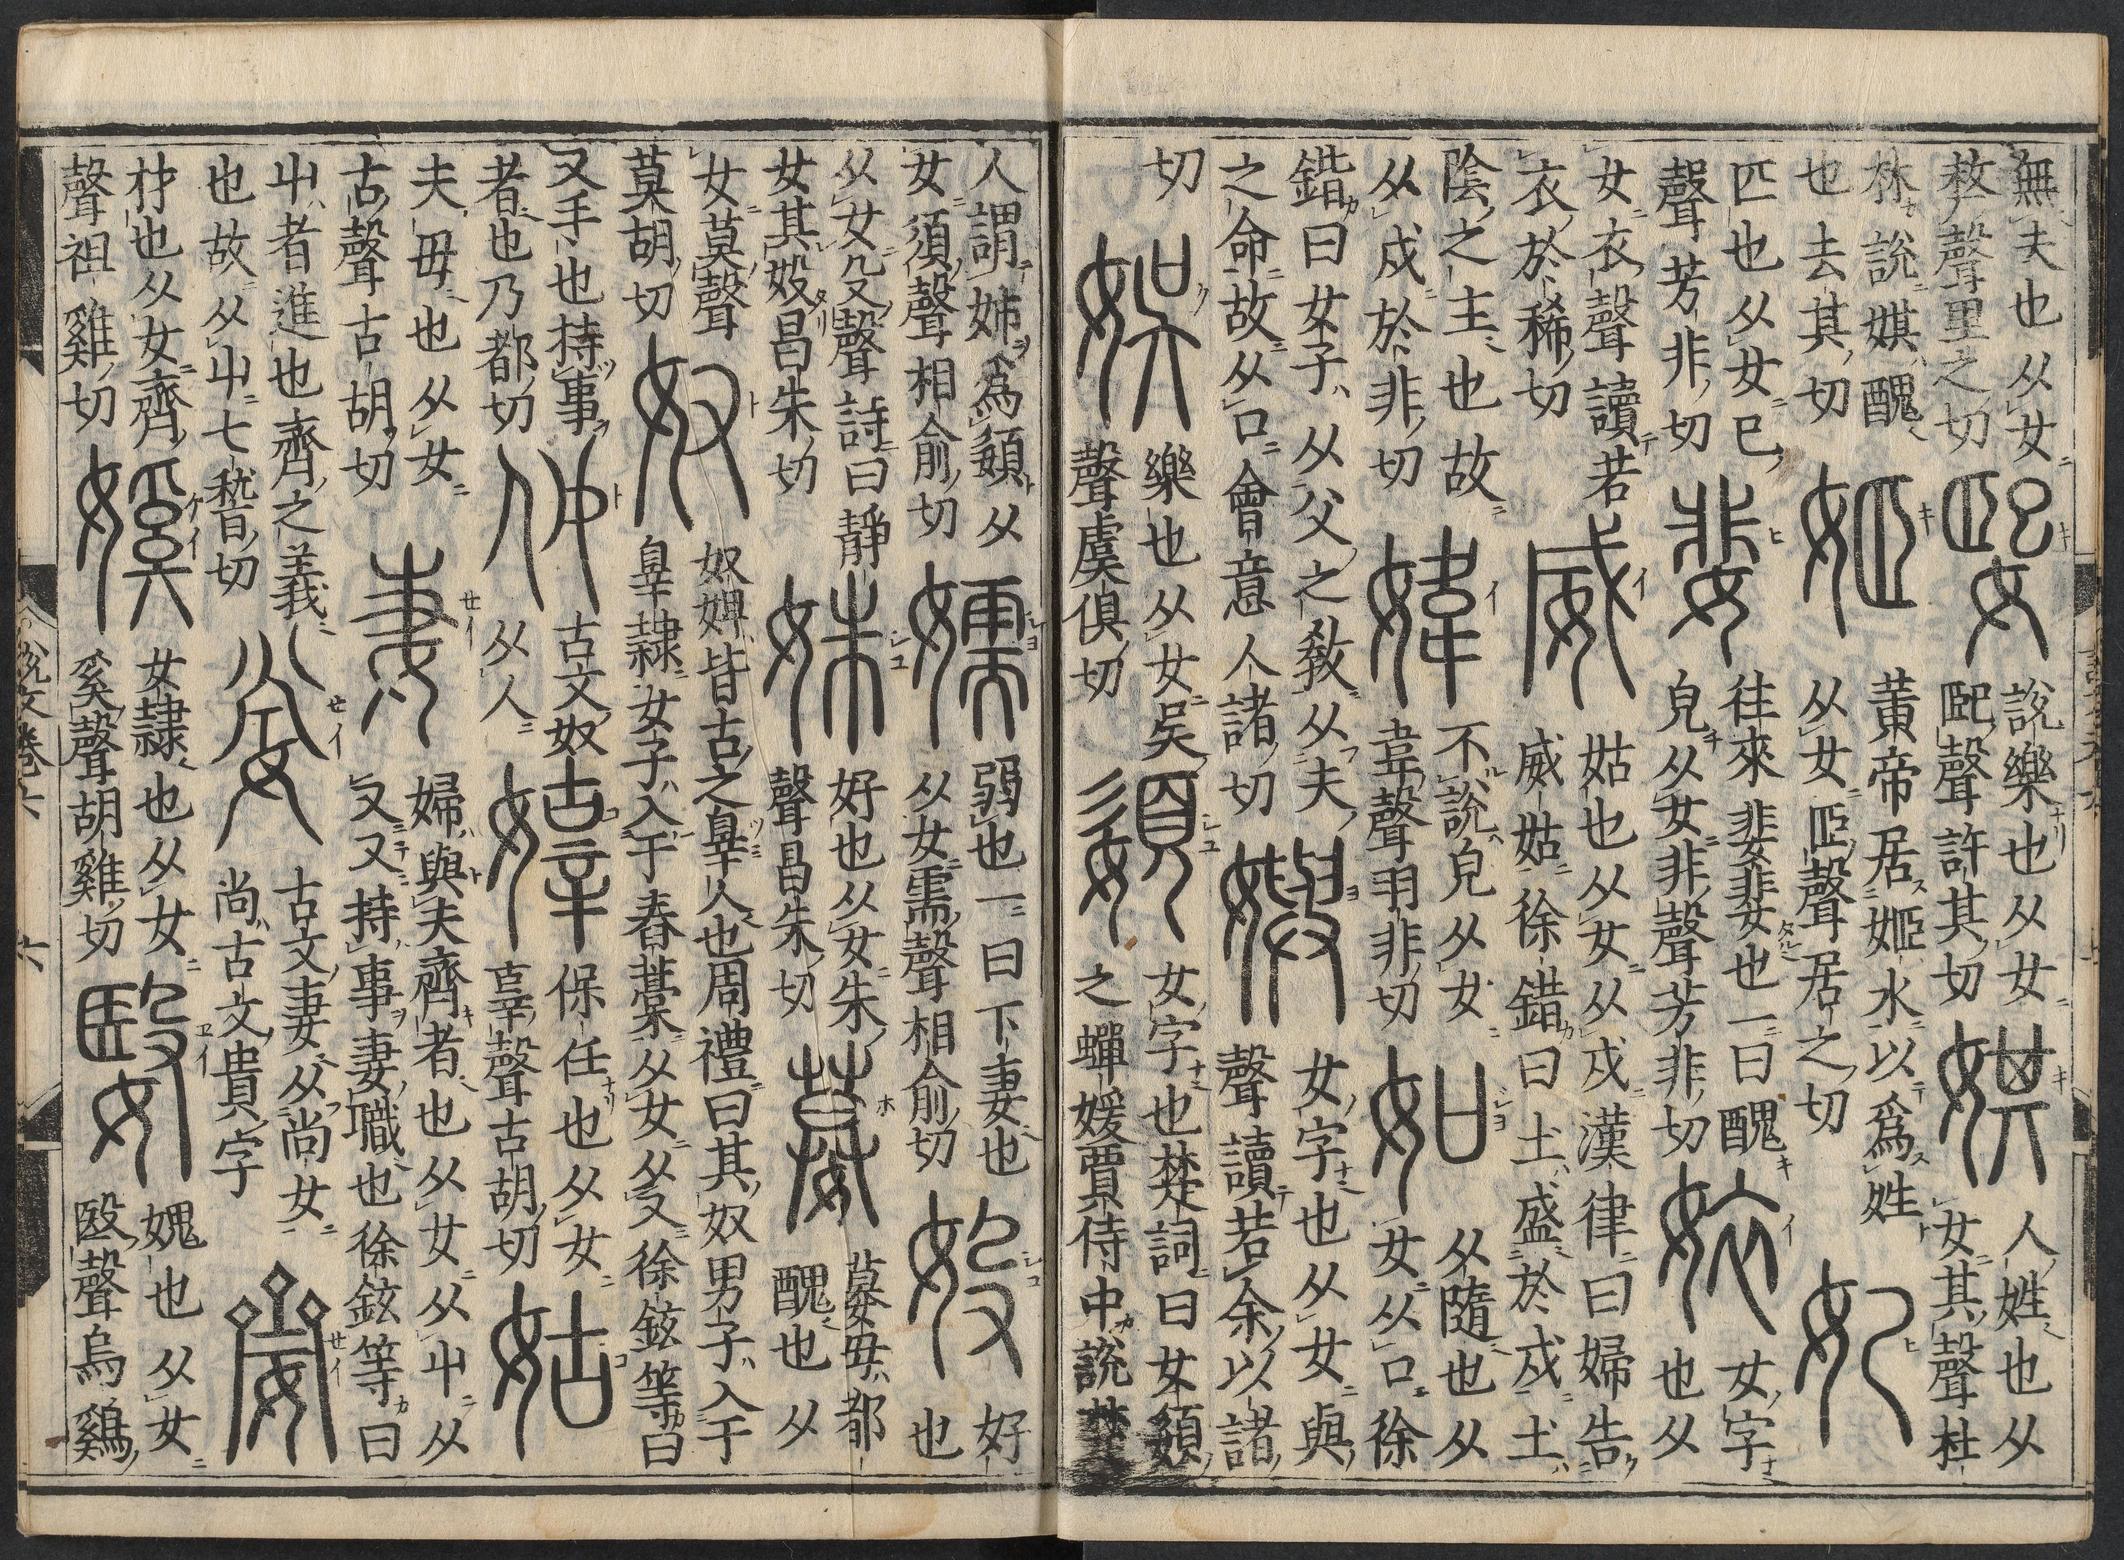 無夫也从女
𠩺聲里之切
媐
說樂也从女
巸聲許其切
娸
人姓也从
女其聲杜
林說娸醜
也去其切
姬
黃帝居姬水以爲姓
从女𦣞聲居之切
妃
匹也从女己
聲芳非切
婓
往來婓婓也一曰醜
皃从女非聲芳非切
㛄
女字
也从
女衣聲讀若
衣於稀切
威
姑也从女从戌漢律曰婦告
威姑徐錯曰土盛於戌土
陰之主也故
从戌於非切
媁
不說皃从女
韋聲羽非切
如
从隨也从
女从口徐
鍇曰女子从父之敎从夫
之命故从口會意人諸切
嬩
女字也从女與
聲讀若余以諸
切
娛
樂也从女吳
聲虞俱切
嬃
女字也楚詞曰女嬃
之蟬媛賈侍中說楚
人謂姊爲嬃从
女須聲相俞切
嬬
弱也一曰下妻也
从女需聲相俞切
㚥
好
也
从女殳聲詩曰靜
女其㚥昌朱切
姝
好也从女朱
聲昌朱切
嫫
嫫母都
醜也从
女莫聲
莫胡切
奴
奴婢皆古之辠人也周禮曰其奴男子入于
辠隷女子入于舂藁从女从又徐鉉等曰
又手也持事
者也乃都切
㐐
古文奴
从人
嫴
保任也从女
辜聲古胡切
姑
夫母也从女
古聲古胡切
妻
婦與夫齊者也从女从屮从
又又持事妻職也徐鉉等曰
屮者進也齊之義
也故从屮七稽切
𡜈
古文妻从尚女
尚古文貴字
齌
材也从女齊
聲祖雞切
㜎
女隷也从女
奚聲胡雞切
嫛
媿也从女
殹聲烏鷄
說文卷六
六